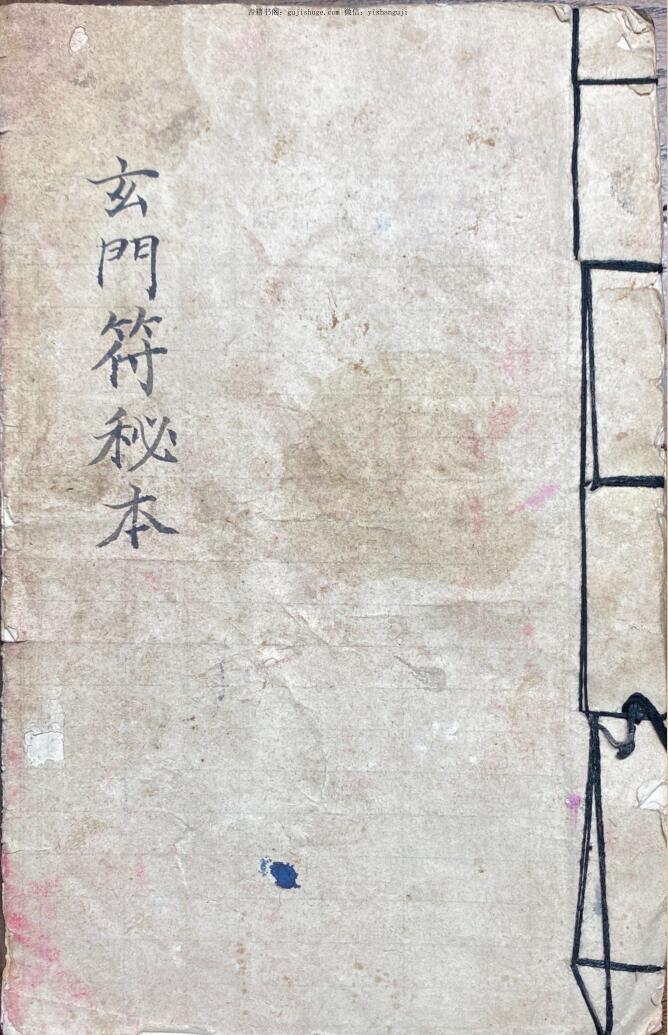 古籍书阁：gujishuge.com 微信：yishanguji
玄門符秘本